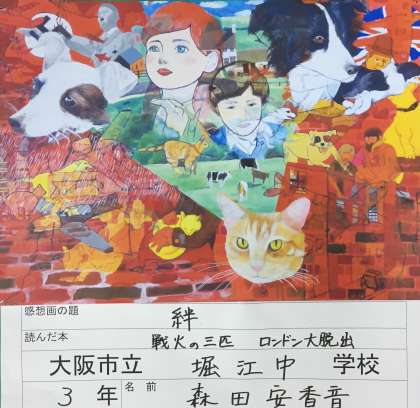 感想画の題 絆
読んだ本 戦火の三匹 ロンドン大脱出
大阪市立 堀江中 学校
3 年 名前 森田安香音